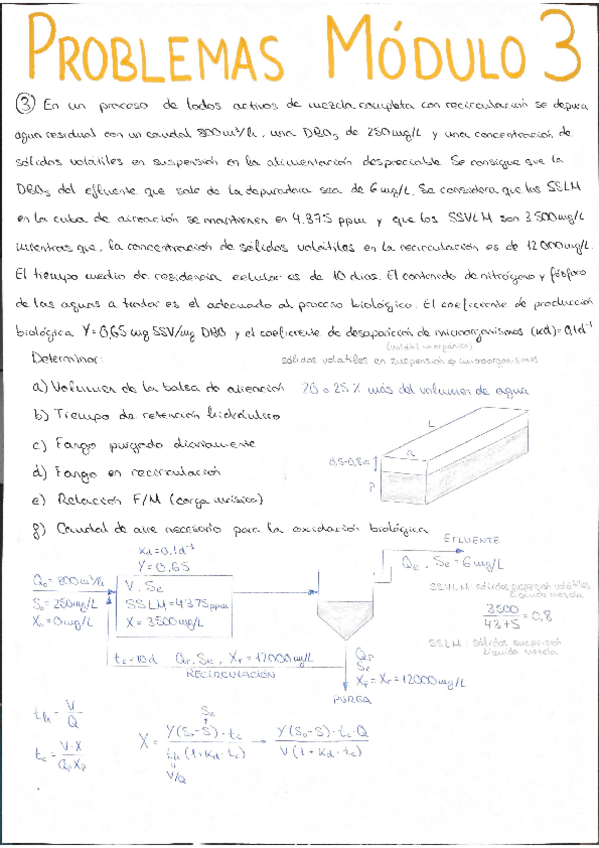 PROBLEMAS MÓDULO 3
③ En un proceso de lodos activos de mezcla completa con recirculación se depura
agua residual con un caudal 800 m³/h, una DBO₅ de 250 mg/L y una concentración de
sólidos volátiles en suspensión en la alimentación despreciable. Se consigue que la
DBO₅ del efluente que sale de la depuradora sea de 6 mg/L. Se considera que los SSLM
en la cuba de aireación se mantienen en 4.375 ppm y que los SSVLM son 3.500 mg/L
mientras que, la concentración de sólidos volátiles en la recirculación es de 12000 mg/L.
El tiempo medio de residencia celular es de 10 días. El contenido de nitrógeno y fósforo
de las aguas a tratar es el adecuado al proceso biológico. El coeficiente de producción
biológica Y=0,65 mg SSV/mg DBO y el coeficiente de desaparición de microorganismos (kd)=0,1d⁻¹
Determinar:
sólidos volátiles en suspensión = microorganismos
a) Volumen de la balsa de aireación 20 o 25% más del volumen de agua
b) Tiempo de retención hidráulico
c) Fango purgado diariamente
d) Fango en recirculación
e) Relación F/M (carga másica)
f) Caudal de aire necesario para la oxidación biológica
L
a
0,5-0,8m
P
Kd=0,1d⁻¹
Y=0,65
EFLUENTE
Q₀=800m³/h
V, Se
Qe, Se=6mg/L
S₀=250mg/L
SSLM=4375ppm
X₀=0mg/L
X=3500mg/L
SSVLM: sólidos suspensión volátiles
líquido mezcla
3500
4375 = 0,8
SSLM: sólidos suspensión
líquido mezcla
tc=10d Qr, Se, Xr=12000mg/L
RECIRCULACIÓN
Qp
Se
Xp=Xr=12000mg/L
PURGA
th = V/Q
tc = V·X / Qp·Xp
Se
X = Y(S₀-S)·tc / th(1+Kd·tc) → Y(S₀-S)·tc·Q / V(1+Kd·tc)
V/Q